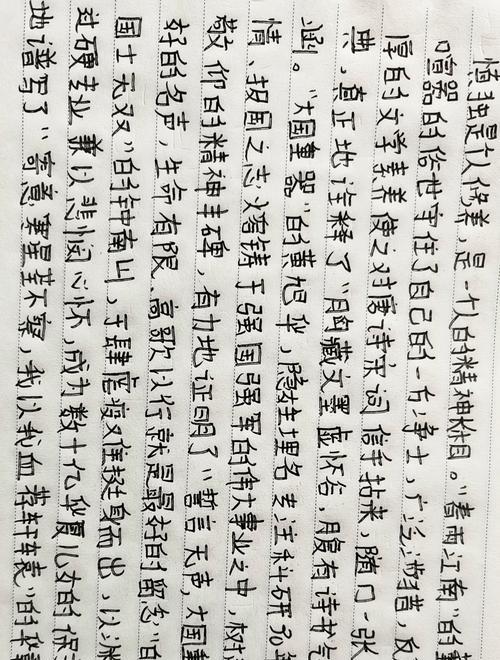 慎独是个人修养，是一个人的精神标目。"春雨江南"的
喧嚣的俗世守住了自己的一方净土，广泛涉猎，反
厚的文学素养使之对唐诗宋词信手拈来，随口一张
典，真正地诠释了"胸藏文墨虚怀谷，腹有诗书气
涵。"大国重器"的黄旭华，隐姓埋名专注科研30年
情、报国之志熔铸于强国强军的伟大事业之中，树
敬仰的精神丰碑，有力地证明了"誓言无声，大国重
好的名声，生命有限，高歌以行就是最好的留念"的
国士无双"的钟南山，于肆虐疫难挺身而出，以
过硬专业兼以悲悯心怀，成为数十亿华夏儿女的保
地谱写了"寄意寒星荃不察，我以我血荐轩辕"的华章